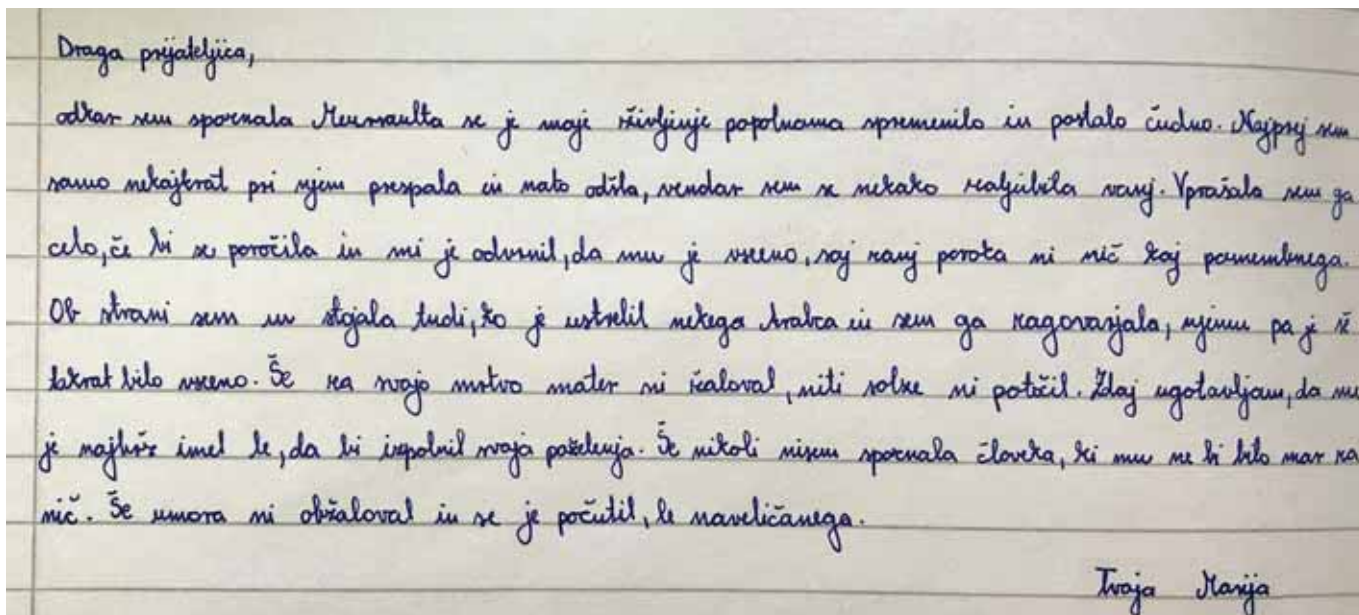 Draga prijateljica,
odkar sem spoznala Meursaulta se je moje življenje popolnoma spremenilo in postalo čudno. Najprej sem
samo nekajkrat pri njem prespala in nato odšla, vendar sem se nekako zaljubila vanj. Vprašala sem ga
celo, če bi se poročila in mi je odvrnil, da mu je vseeno, saj zanj poroka ni nič kaj pomembnega.
Ob strani sem mu stojala tudi, ko je ustrelil nekega Arabca in sem ga zagovarjala, njemu pa je že
takrat bilo vseeno. Še za svojo mrtvo mater ni žaloval, niti solze ni potočil. Zdaj ugotavljam, da me
je najbrž imel le, da bi izpolnil svoja poželenja. Še nikoli nisem spoznala človeka, ki mu ne bi bilo mar za
nič. Še umora ni obžaloval in se je počutil, le naveličanega.
Tvoja Marija